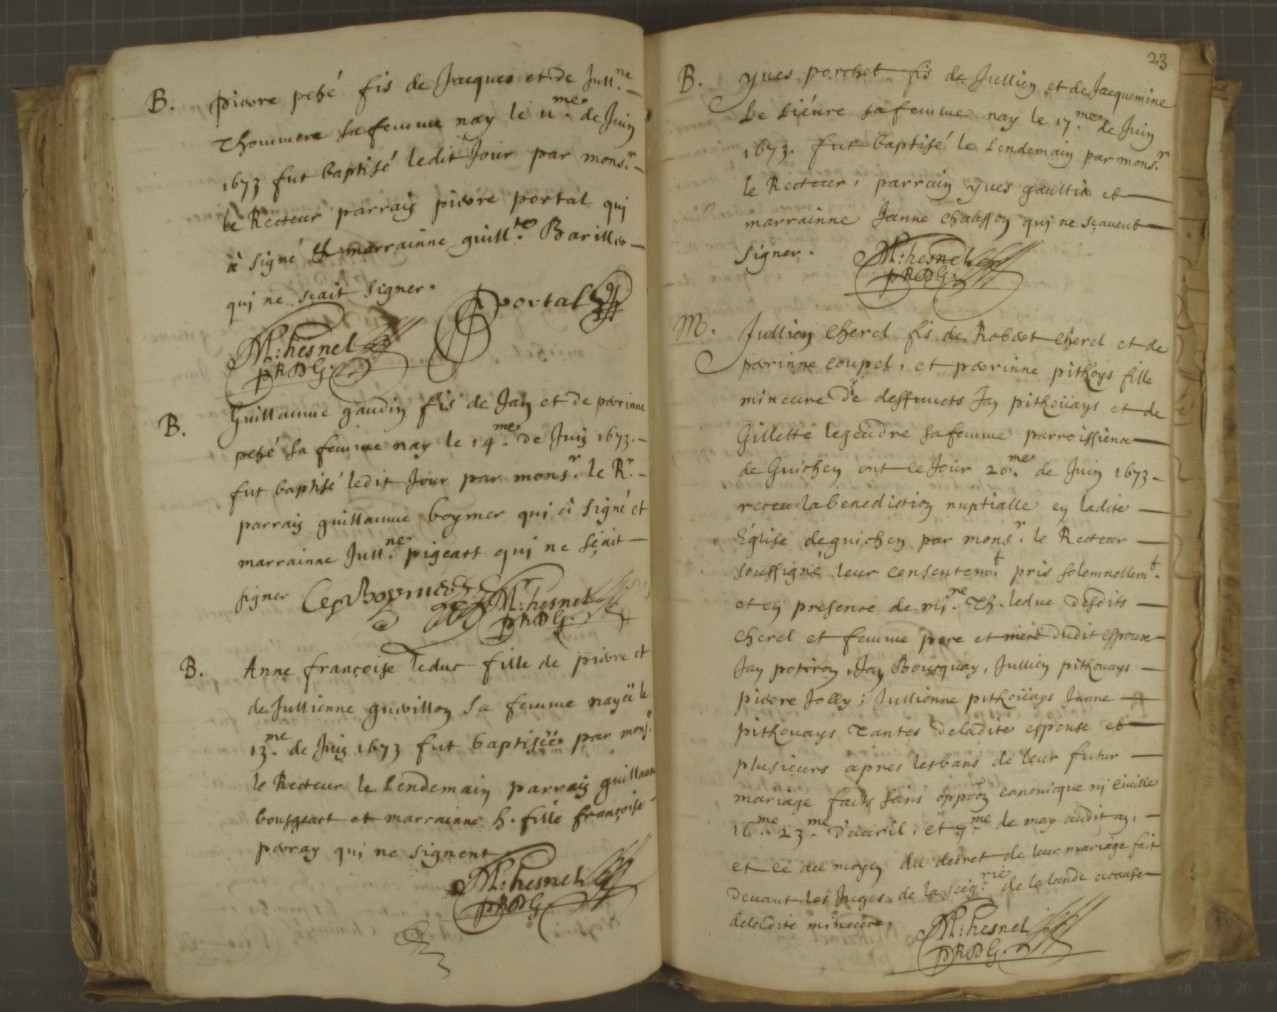 B. pierre pezé fis de Jacques et de Jull.ne
Thommere sa femme nay le 11.me de Juin
1673 fut baptisé ledit Jour par mons.r
le Recteur parrain pierre portal qui
a signé et marrainne guill.te Barillé
qui ne sçait signer.
Pportal
M: hesnel
pRDG.
B. Guillaume gaudin fis de Jan et de perinne
pezé sa femme nay le 14.me de Juin 1673.
fut baptisé ledit Jour par mons.r le R.r
parrain guillaume boymer qui a signé et
marrainne Jull.ne pigeart qui ne sçait
signer
M: hesnel
pRDG.
B. Anne françoise leduc fille de pierre et
de Jullienne sa femme nayë le
13.me de Juin 1673 fut baptisée par mons.r
le Recteur le Lendemain parrain guillaume
bougeart et marrainne h. fille françoise
qui ne signent
M: hesnel
pRDG
23
B. Yves porchet fis de Jullien et de Jacquemine
Le Lièure sa femme nay le 17.me de Juin
1673. fut baptisé le Lendemain par mons.r
le Recteur, parrain yves gaultier et
marrainne Janne chausson qui ne sçavent
signer.
M: hesnel
pRDG.
M. Jullien cherel fis de Robert cherel et de
perinne coupel, et perinne pitkoys fille
mineure de deffuncts Jan pitkoüays et de
Gillette legendre sa femme parroissiens
de Guichen ont ce Jour 20.me de Juin 1673
receu la benediction nuptialle en ladite
Église de guichen par mons.r le Recteur
soussigné leur consentem.t pris solemnellem.t
et en presence de Th. leduc desdits
cherel et femme pere et mere dudit espoux
Jan potiron, Jan Jullien pitkouays
pierre Jolly; Jullienne pitkoüays Janne
pitkouays Tantes deladite espouse et
plusieurs apres lesbans de leur futur
mariage faits sans oppôon canonicque nj ciuille
16.me 23.me D'auril, et 7.me de may audit an,
et ce au moyen du decret de leur mariage fait
deuant les Juges de la seig.rie de la lande acause
deladite minorité,
M: hesnel
pRDG.